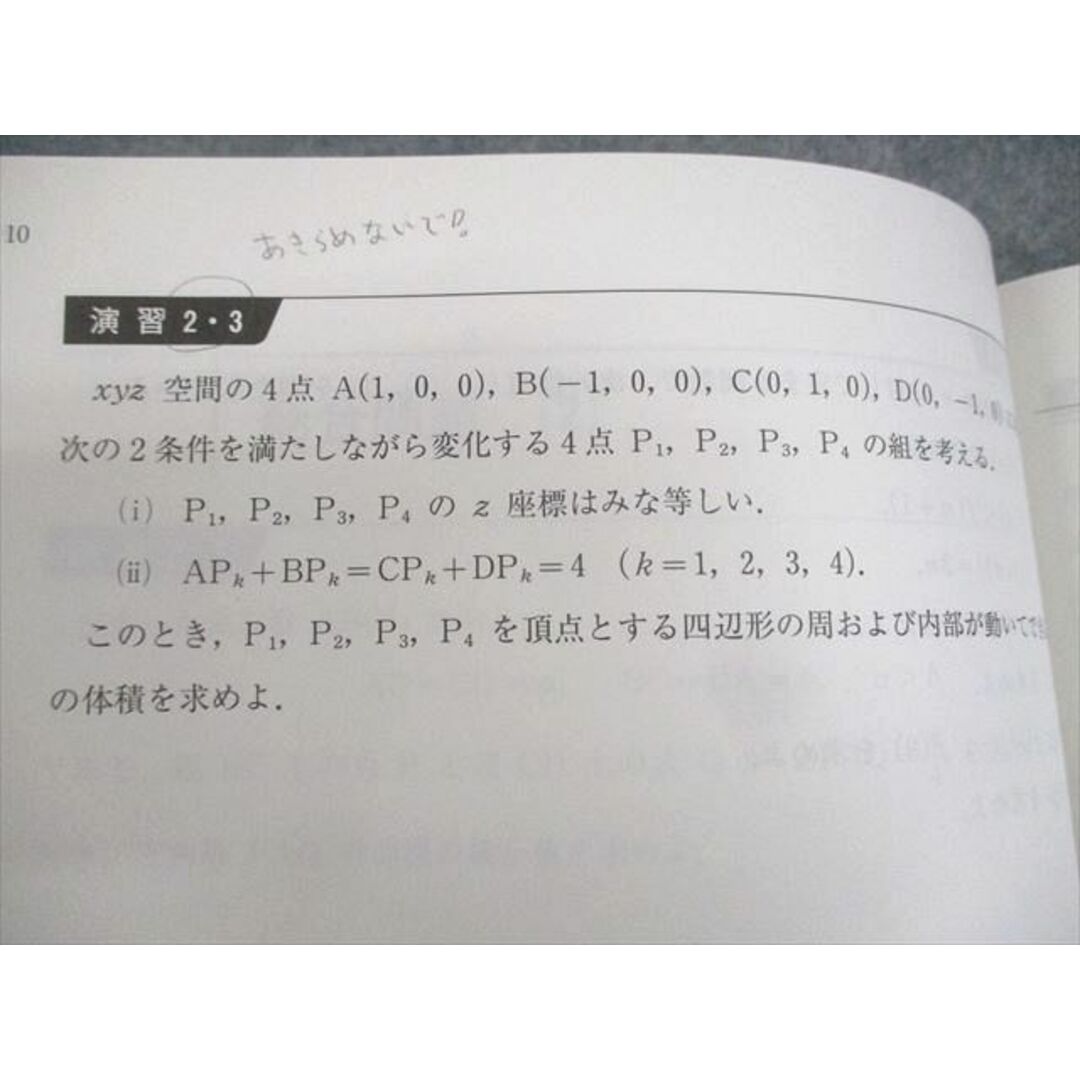 10
あきらめないで!
演習 2・3
xyz 空間の4点 A(1, 0, 0), B(−1, 0, 0), C(0, 1, 0), D(0, −1,
次の2条件を満たしながら変化する4点 P₁, P₂, P₃, P₄ の組を考える.
(i) P₁, P₂, P₃, P₄ の z 座標はみな等しい.
(ii) APₖ+BPₖ=CPₖ+DPₖ=4 (k=1, 2, 3, 4).
このとき, P₁, P₂, P₃, P₄ を頂点とする四辺形の周および内部が動いて
の体積を求めよ.